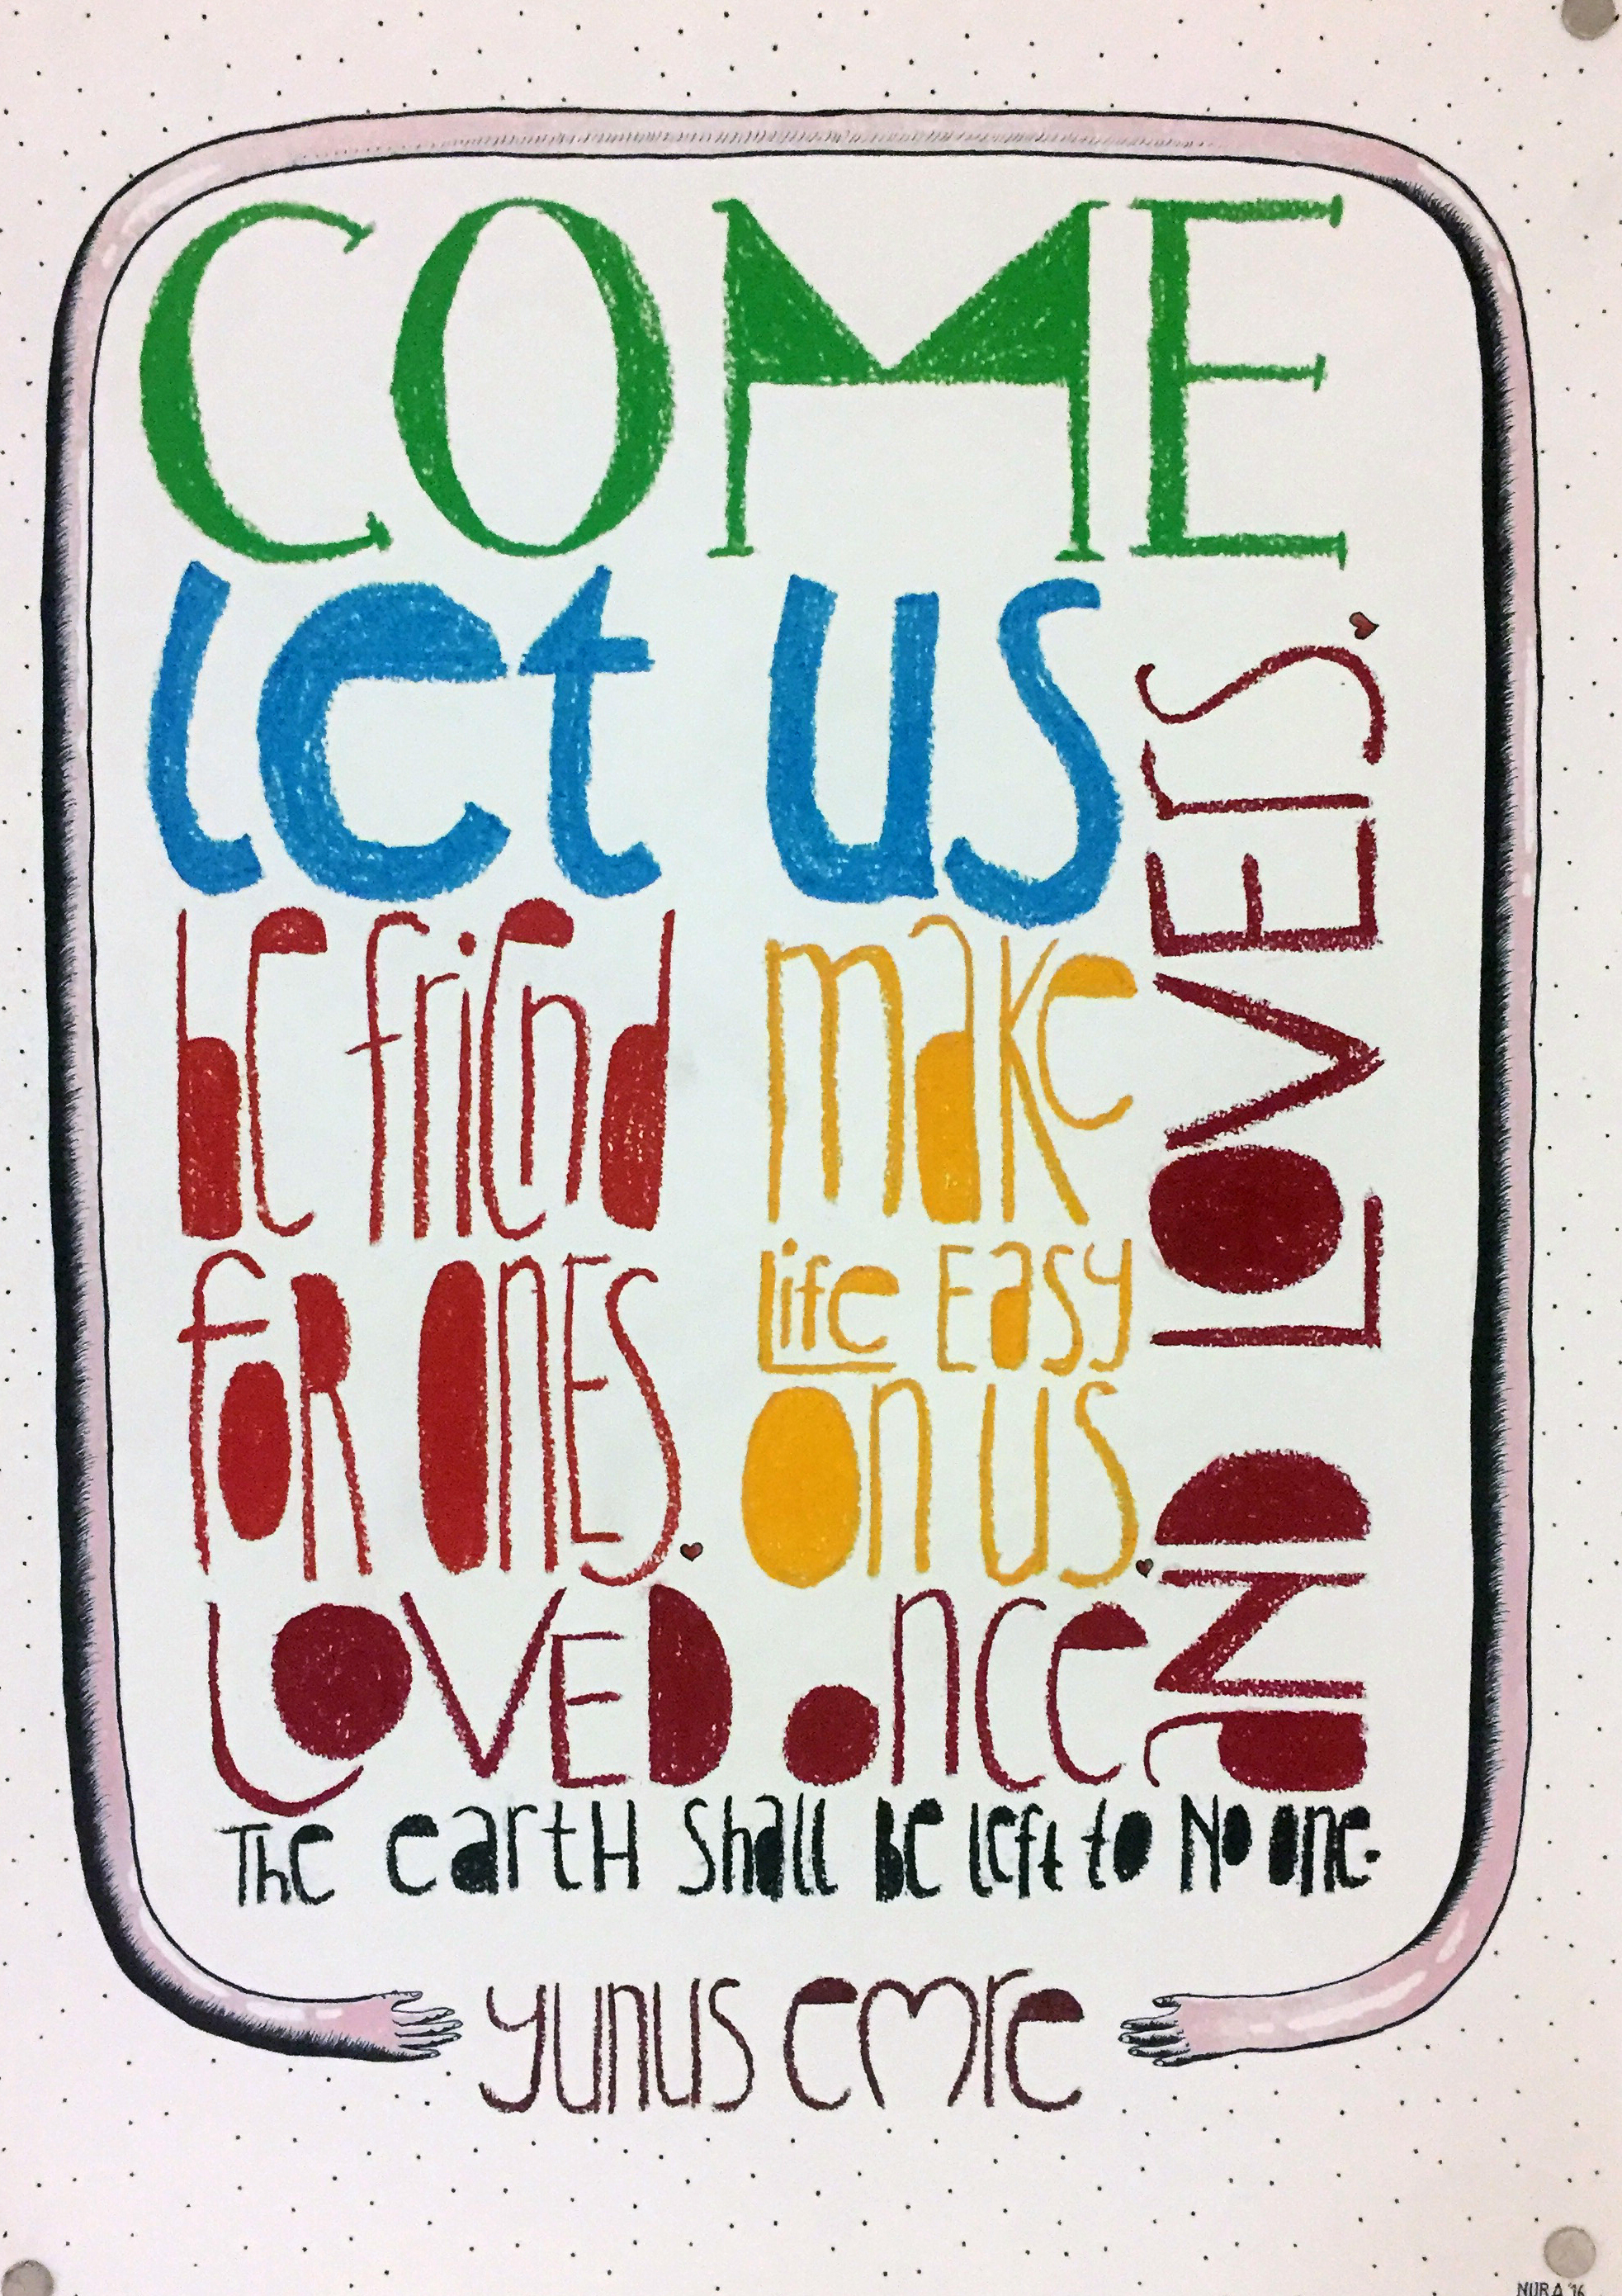 COME
let us
be friend
for ones.
make
Life Easy
on us.
LOVED once
aND LOVErs.
The earth shall be left to No one.
yunus emre
NURA '16